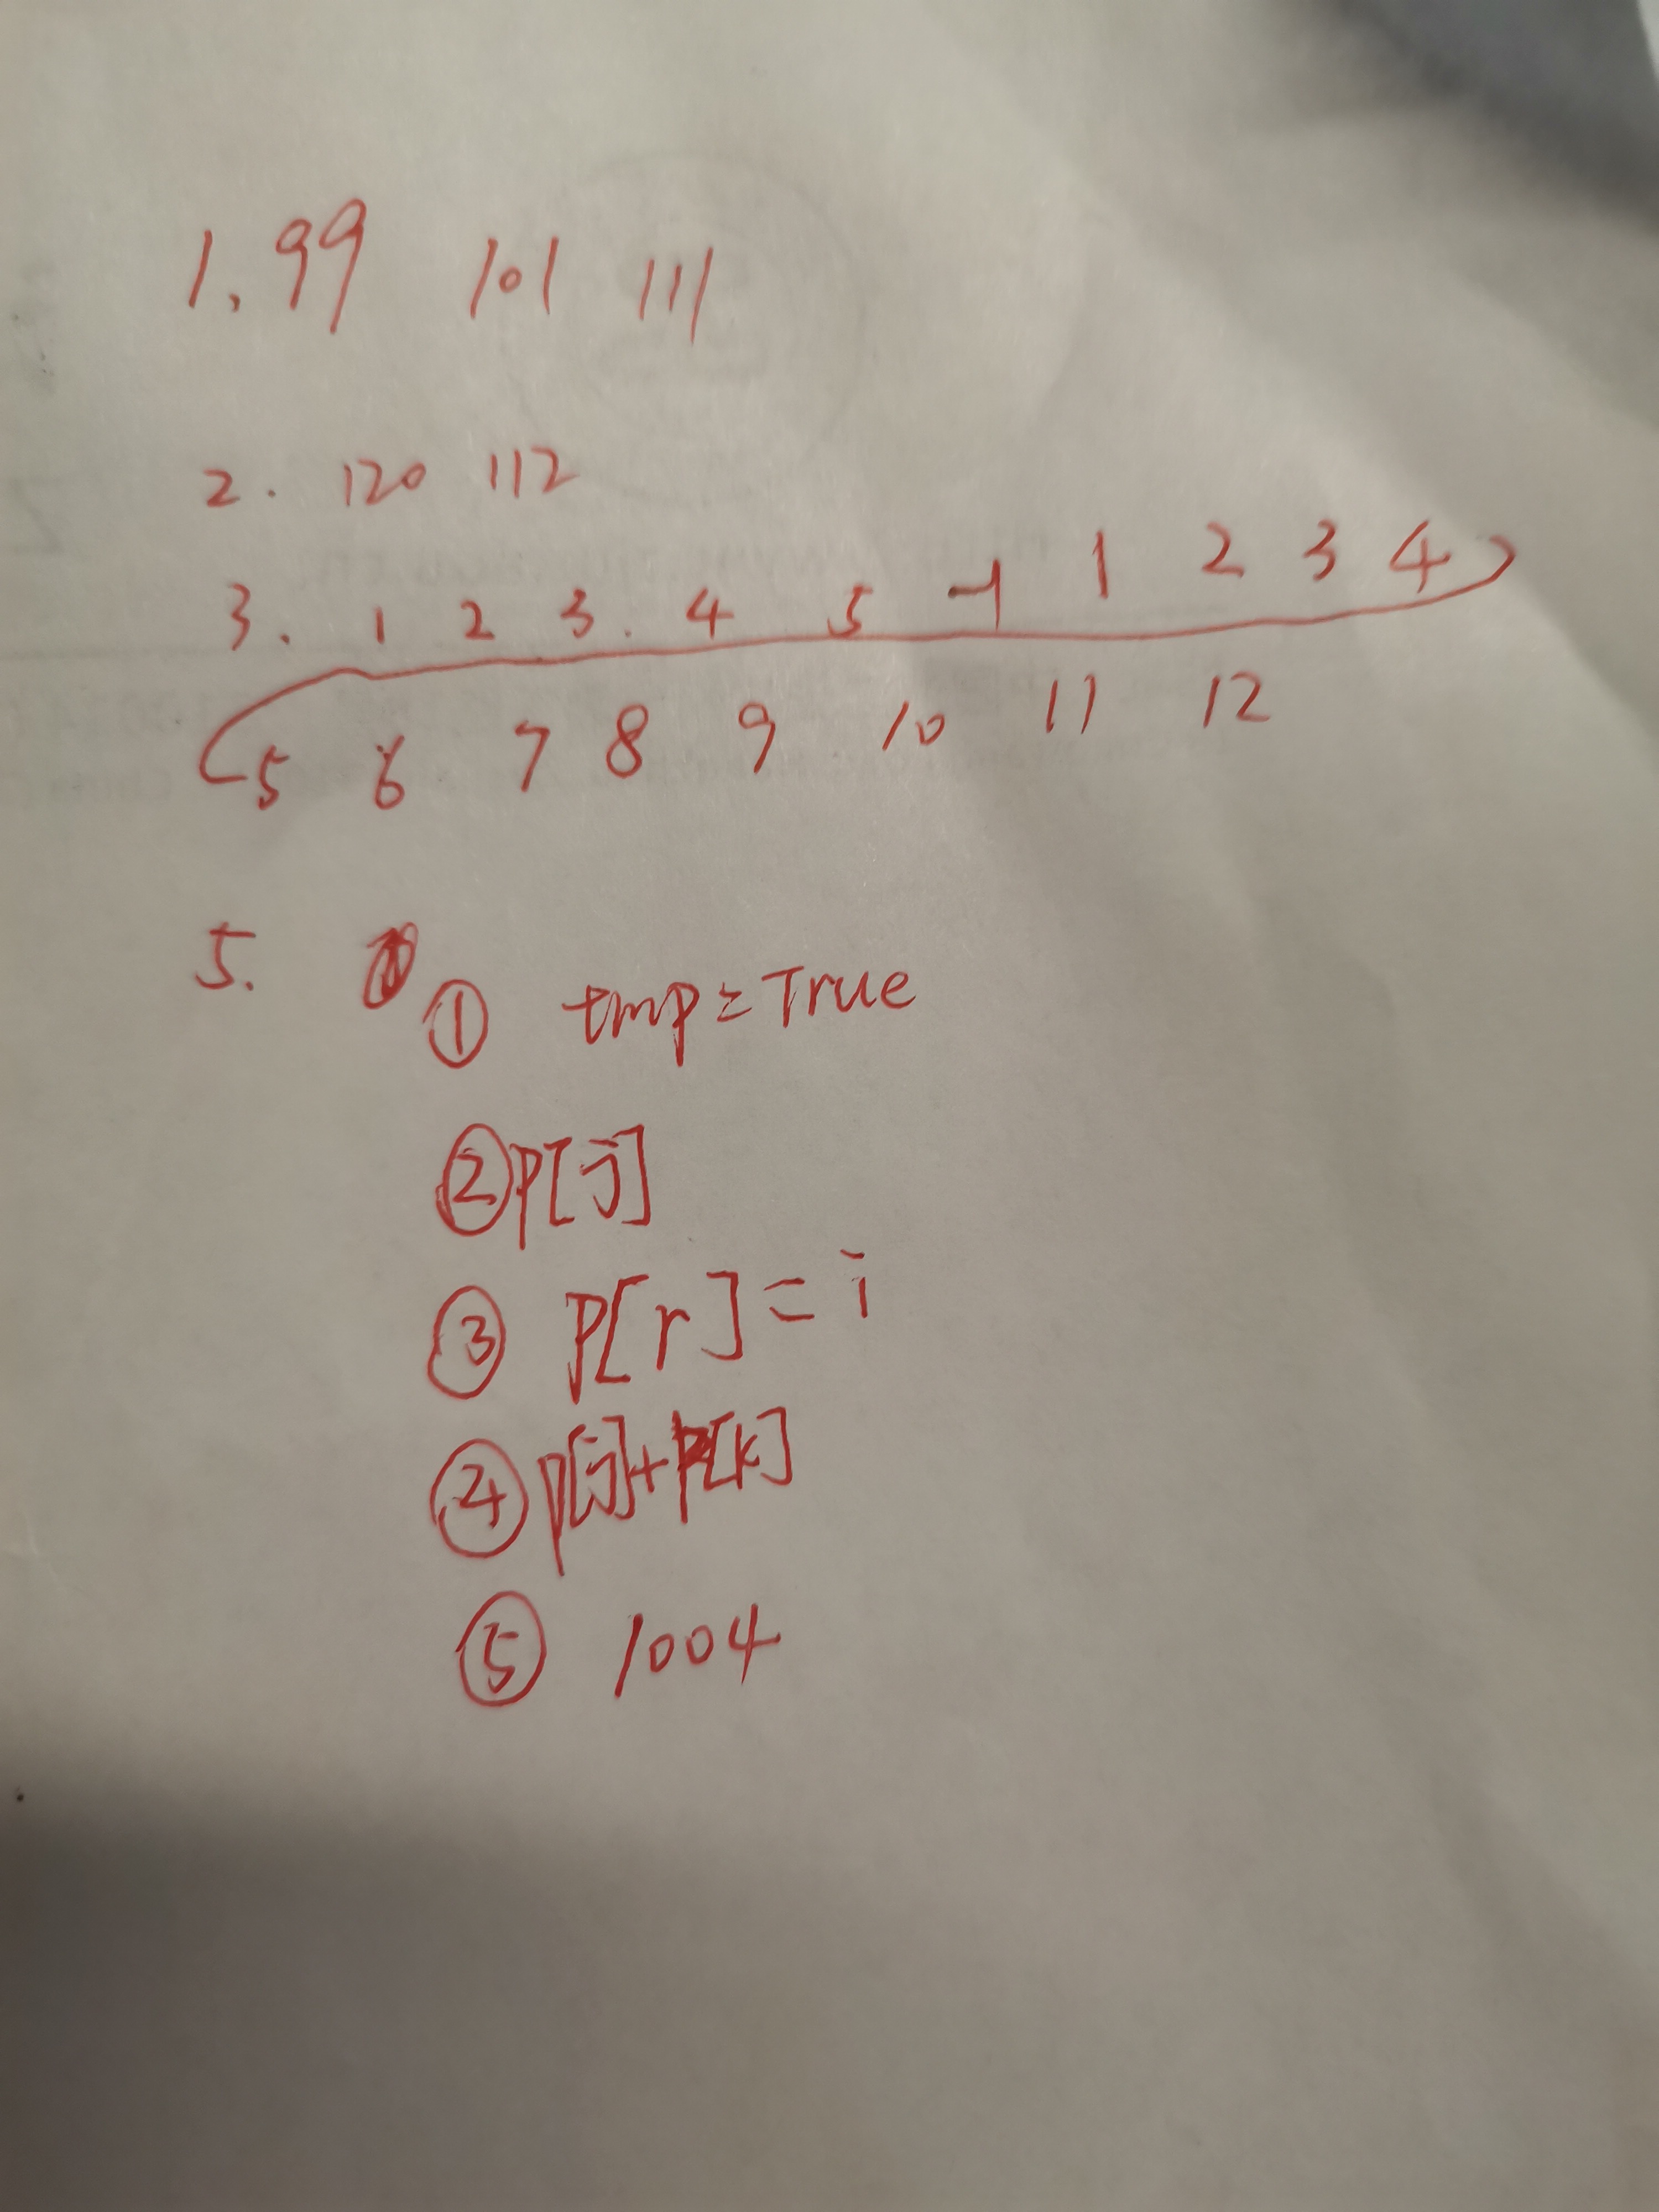 1. 99 101 111
2. 120 112
3. 1 2 3. 4 5 -1 1 2 3 4
5 6 7 8 9 10 11 12
5. ① tmp=True
② p[j]
③ p[r]=i
④ p[j]+p[k]
⑤ 1004